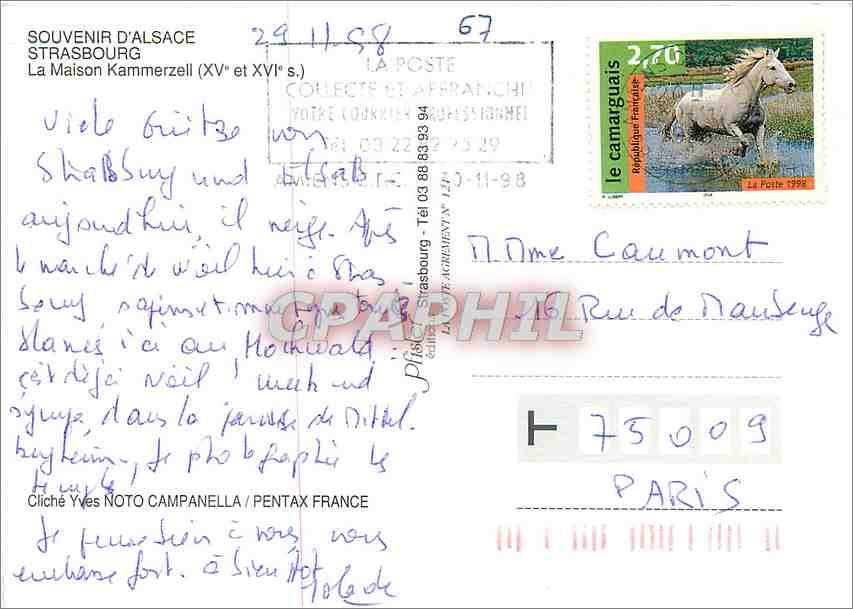 SOUVENIR D'ALSACE
STRASBOURG
La Maison Kammerzell (XVe et XVIe s.)
29 11-98
67
LA POSTE
COLLECTE ET AFFRANCHIT
VOTRE COURRIER PROFESSIONNEL
30-11-98
le camarguais
République Française
2,70
La Poste 1998
Viele Grüsse von
Strassburg und Elsass
aujourd'hui, il neige. Après
le marché de Noël hier à Stras
bourg, sapins et montagnes tout
blancs ici au Hochwald
c'est déjà Noël ! week end
sympa, dans la paroisse de Mittel
bergheim, je photographie le
temple !
Je pense bien à vous, vous
embrasse fort. à bientôt
Pfister
éditions Strasbourg - Tél 03 88 83 93 94
LA POSTE AGREMENT N°
CPAPHIL
MMme Caumont
16 Rue de Maubeuge
T 75009
PARIS
Cliché Yves NOTO CAMPANELLA / PENTAX FRANCE